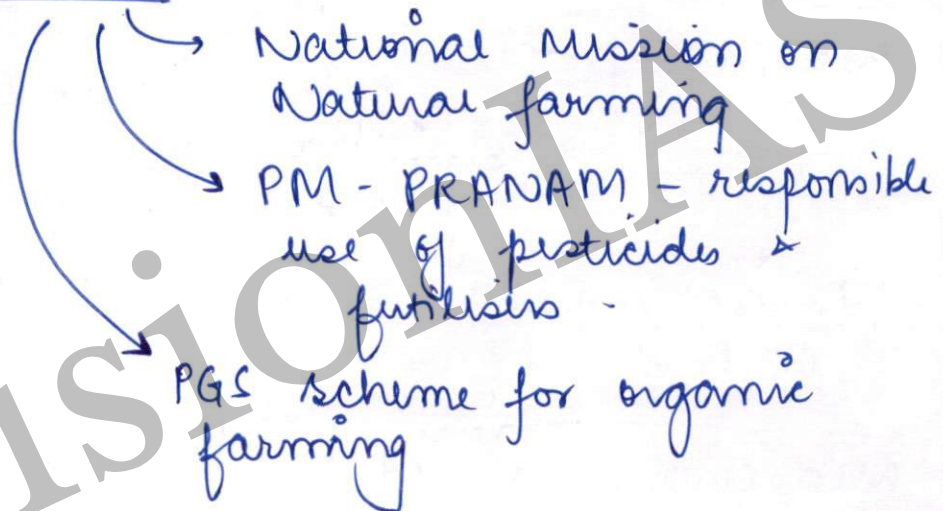 National Mission on
Natural farming
PM - PRANAM - responsible
use of pesticides &
fertilisers -
PGS scheme for organic
farming
VisionIAS